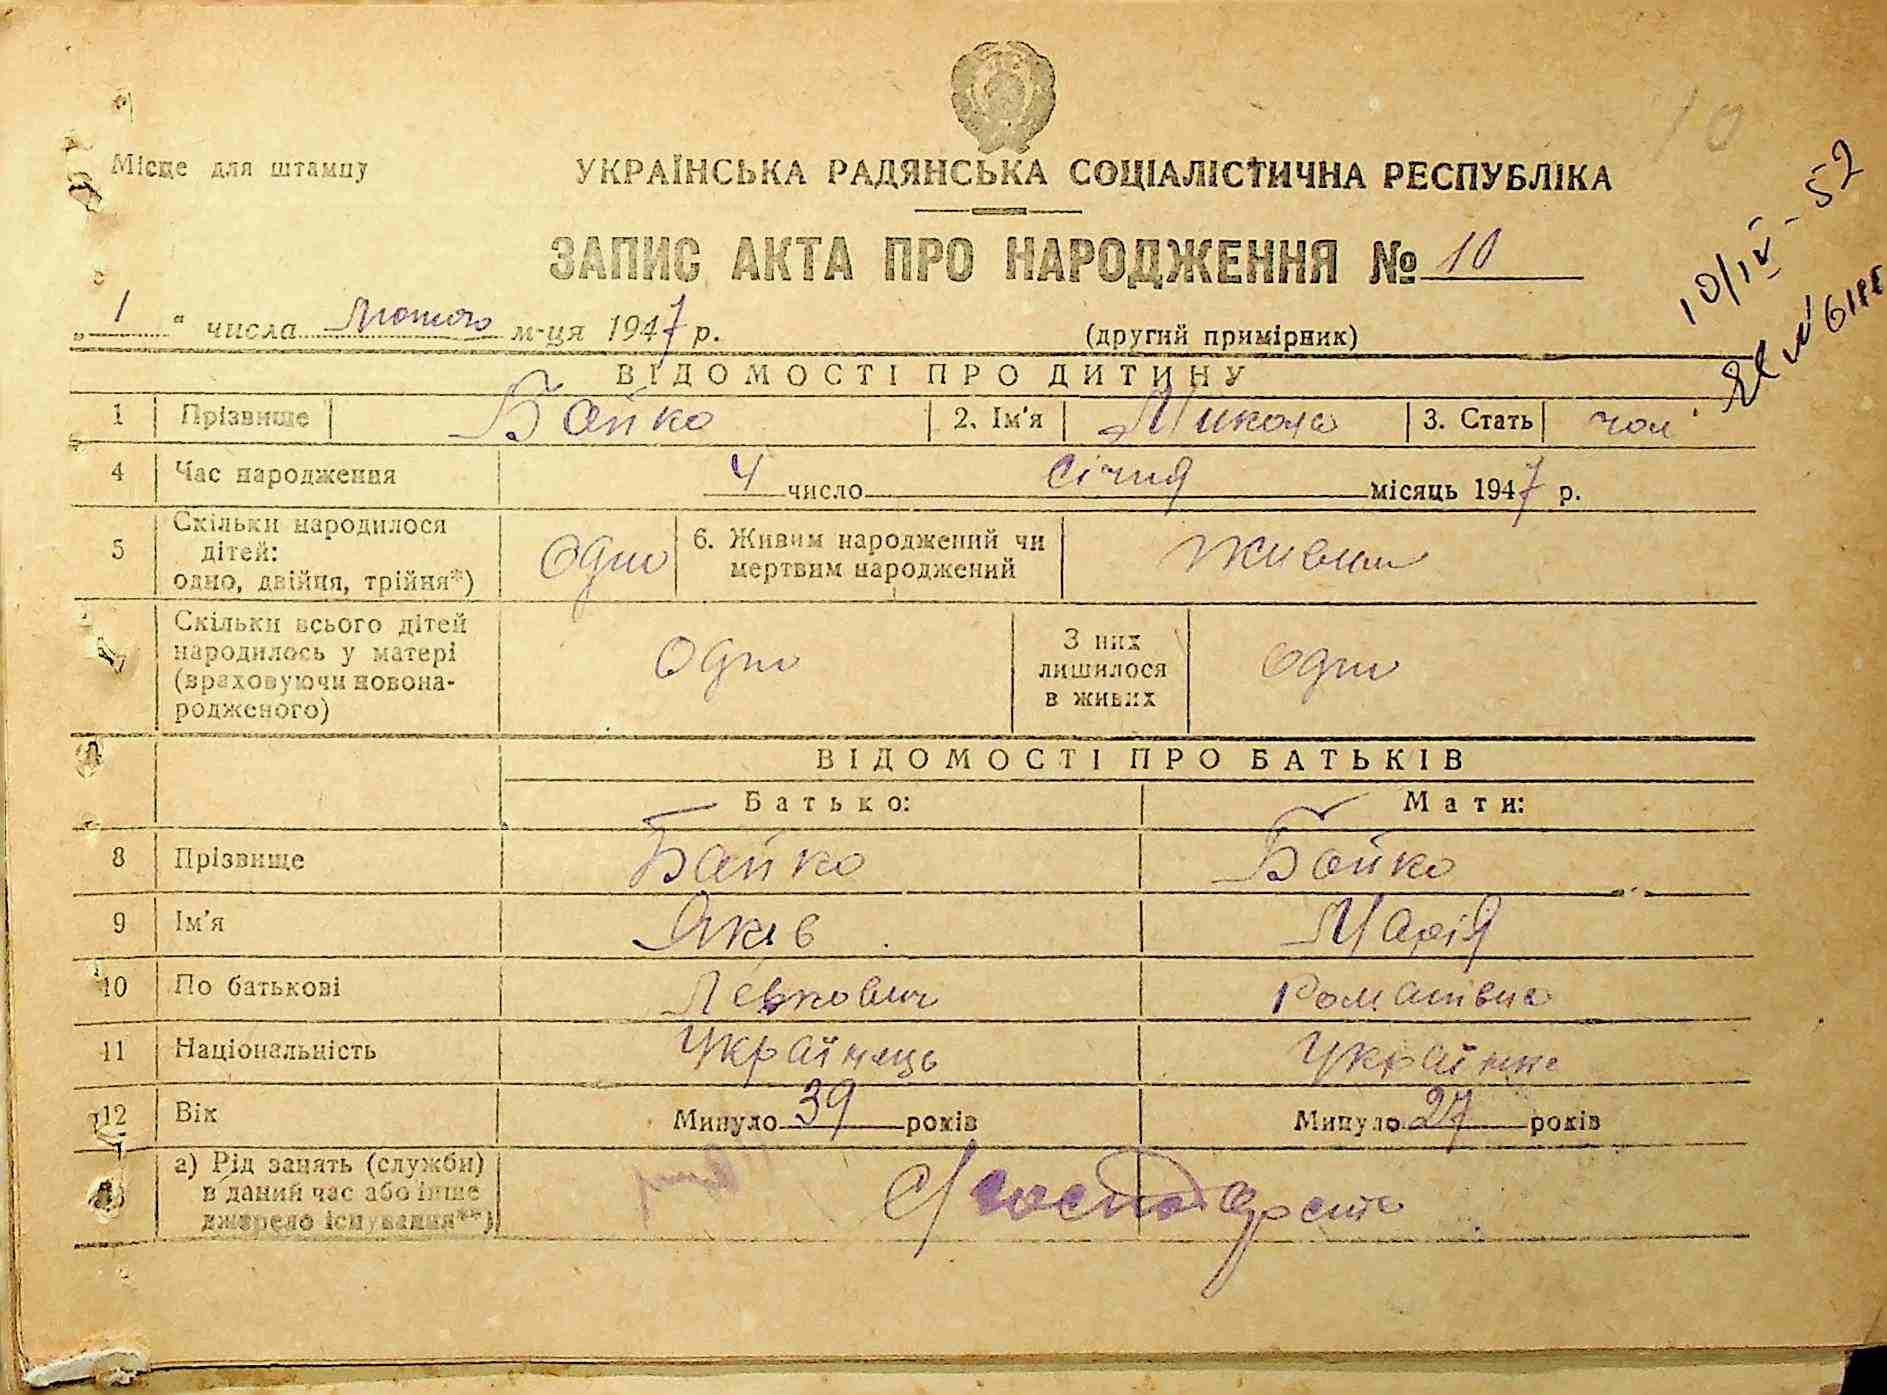 10
Місце для штампу
УКРАЇНСЬКА РАДЯНСЬКА СОЦІАЛІСТИЧНА РЕСПУБЛІКА
10/IV-52
ЗАПИС АКТА ПРО НАРОДЖЕННЯ № 10
„ 1 “ числа Лютого м-ця 1947 р.
(другий примірник)
ВІДОМОСТІ ПРО ДИТИНУ
1 Прізвище Бойко 2. Ім'я Микола 3. Стать чол
4 Час народження 4 число Січня місяць 1947 р.
5 Скільки народилося
дітей:
одно, двійня, трійня*) Одно
6. Живим народжений чи
мертвим народжений
живим
Скільки всього дітей
народилось у матері
(враховуючи новона-
родженого)
Одно
З них
лишилося
в живих
одно
ВІДОМОСТІ ПРО БАТЬКІВ
Батько: Мати:
8 Прізвище Бойко Бойко
9 Ім'я Яків Марія
10 По батькові Левкович Романівна
11 Національність Українець Українка
12 Вік Минуло 39 років Минуло 27 років
а) Рід занять (служби)
в даний час або інше
джерело існування**)
С/господарство